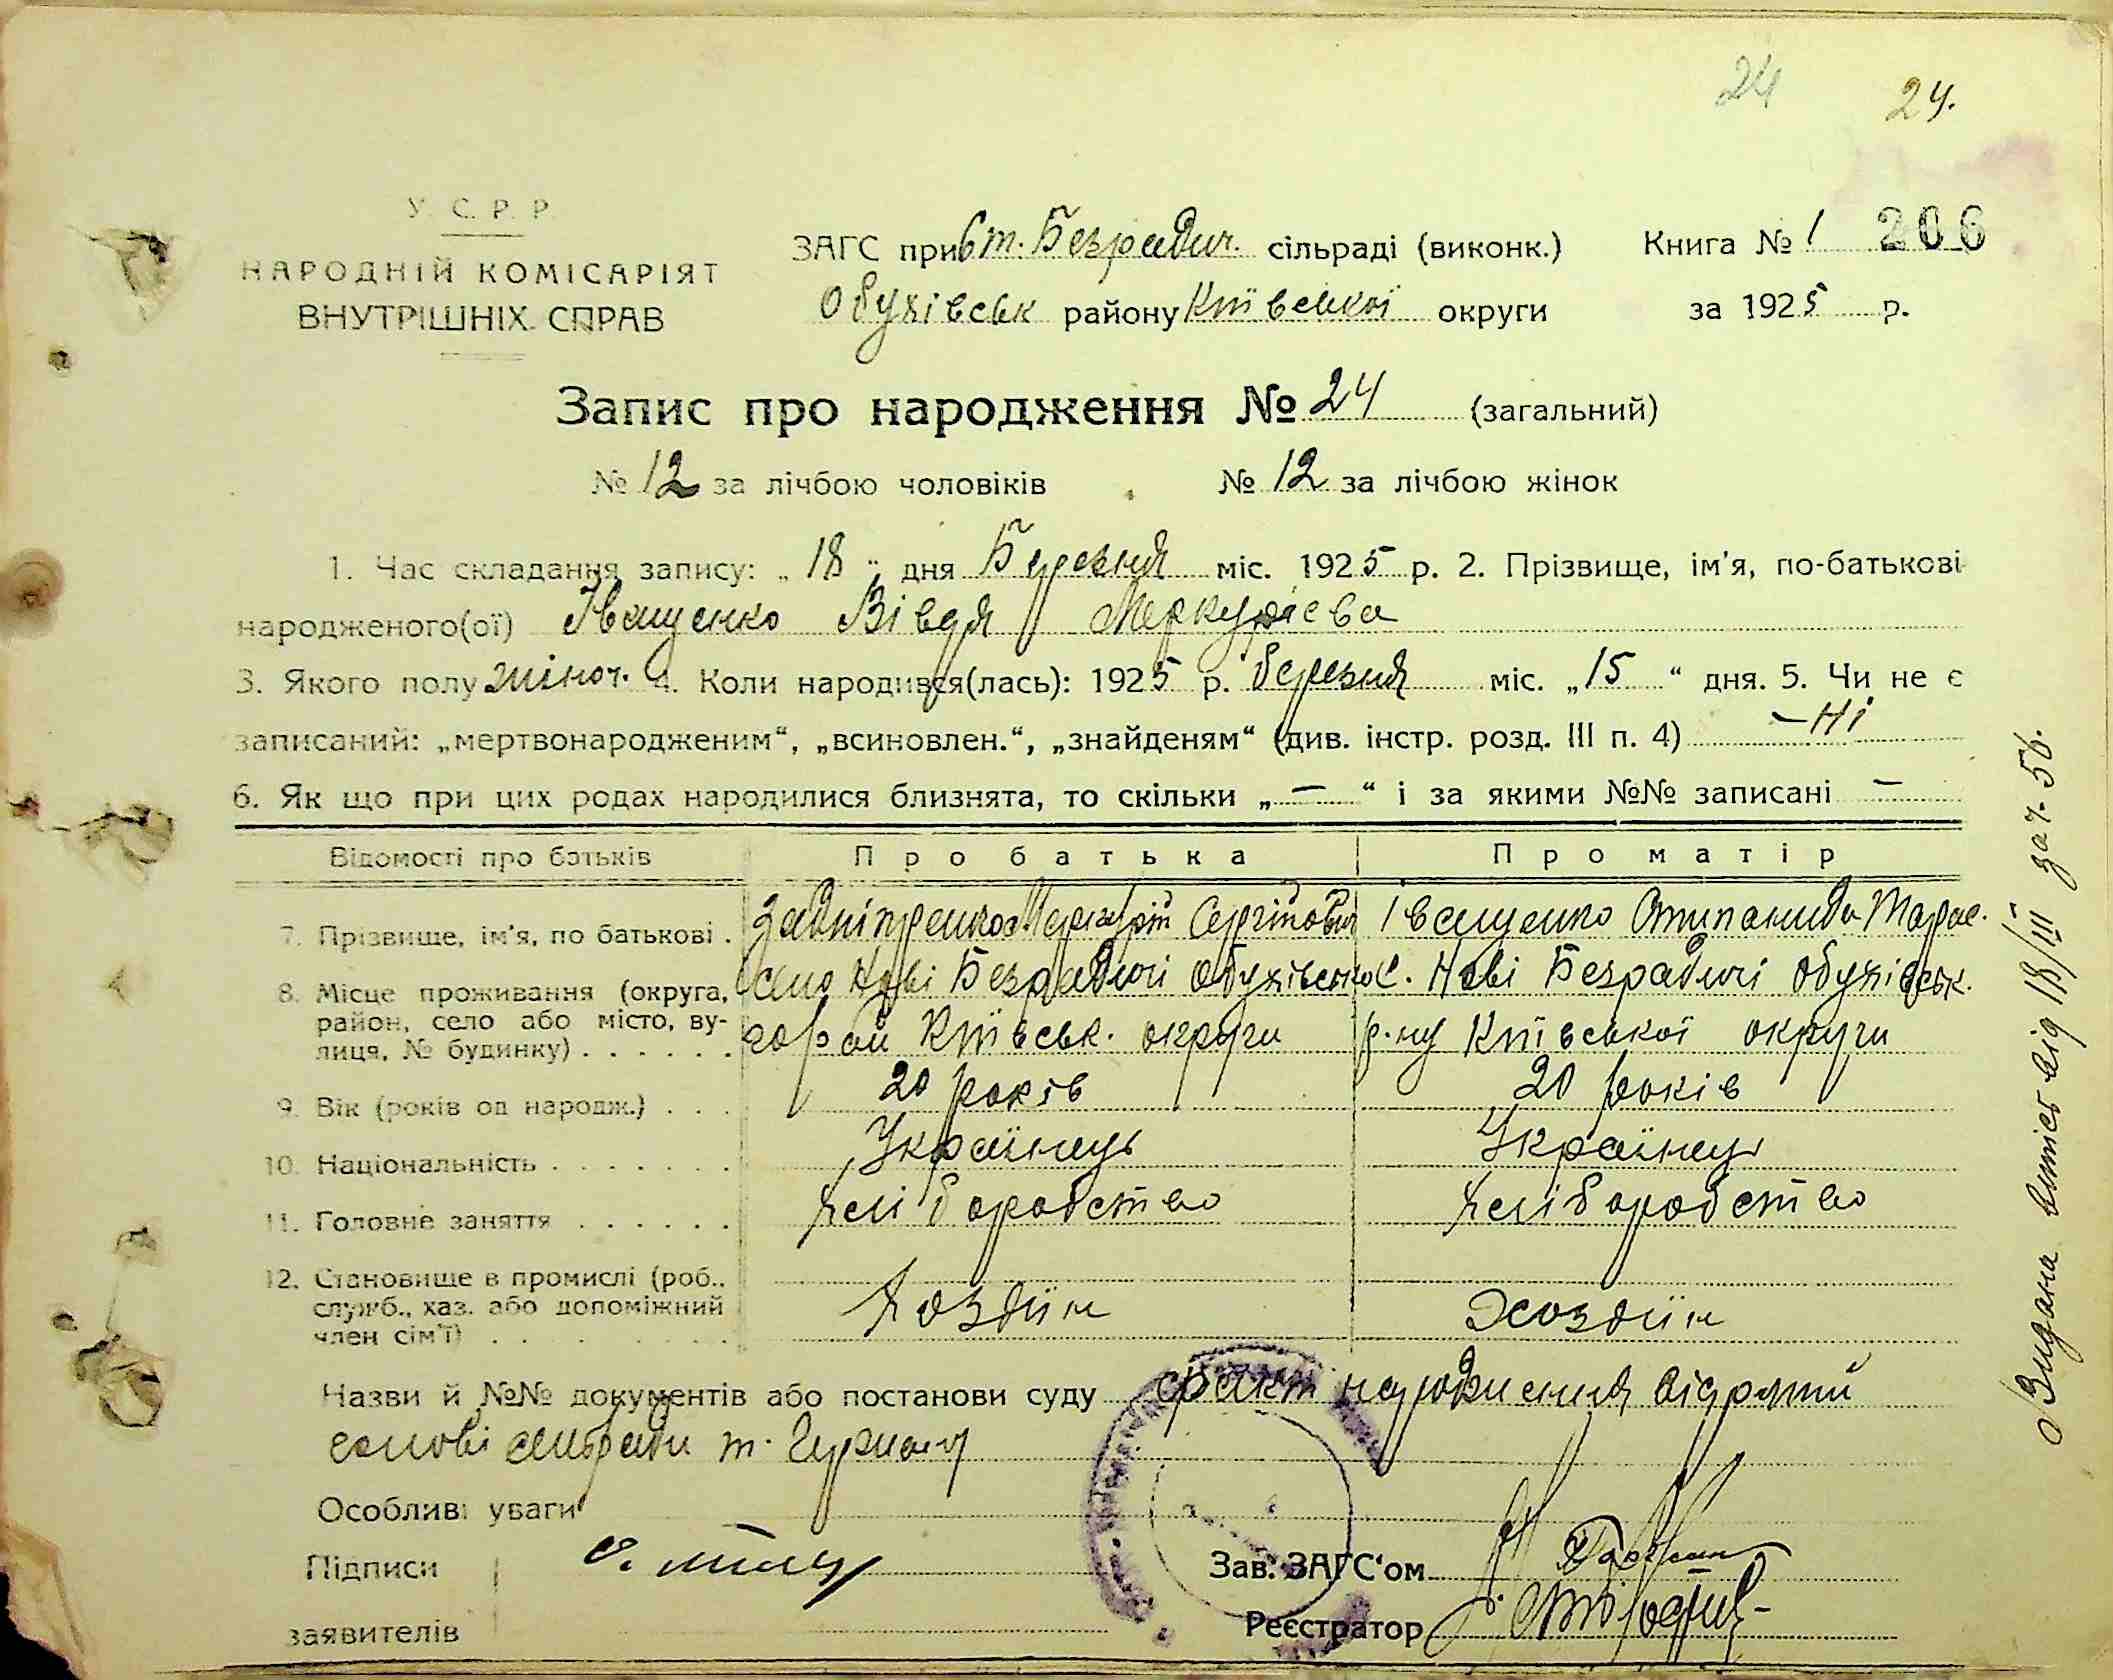 24 24.
У. С. Р. Р.
НАРОДНІЙ КОМІСАРІЯТ
ВНУТРІШНІХ СПРАВ
ЗАГС при Ст. Безрадич. сільраді (виконк.) Книга № 1 206
Обухівськ району Київської округи за 1925 р.
Запис про народження № 24 (загальний)
№ 12 за лічбою чоловіків № 12 за лічбою жінок
1. Час складання запису: „ 18 “ дня Березня міс. 1925 р. 2. Прізвище, ім'я, по-батькові
народженого(ої) Іващенко Вівдя Меркурієва
3. Якого полу жіноч. 4. Коли народився(лась): 1925 р. березня міс. „15 “ дня. 5. Чи не є
записаний: „мертвонародженим“, „всиновлен.“, „знайденям“ (див. інстр. розд. III п. 4) — Ні
6. Як що при цих родах народилися близнята, то скільки „ — “ і за якими №№ записані —
Відомості про батьків Про батька Про матір
7. Прізвище, ім'я, по батькові . Меркурій Сергійович Іващенко Степанида Тарас.
8. Місце проживання (округа, село Нові Безрадичі Обухівсько с. Нові Безрадичі Обухівськ.
район, село або місто, ву-
лиця, № будинку) . . . . . . го рай Київськ. округи р-ну Київської округи
9. Вік (років од народж.) . . . 20 років 20 років
10. Національність . . . . . . . Українець Українец
11. Головне заняття . . . . . . Хліборобство Хліборобство
12. Становище в промислі (роб.,
служб., хаз. або допоміжний
член сім'ї) . . . . . . . Хозяїн Хозяїн
Назви й №№ документів або постанови суду факт народження відомий
голові сільради т.
Особливі уваги
Підписи Зав. ЗАГС'ом
заявителів Реєстратор
Видана витяг від 18/III за ч. 56.